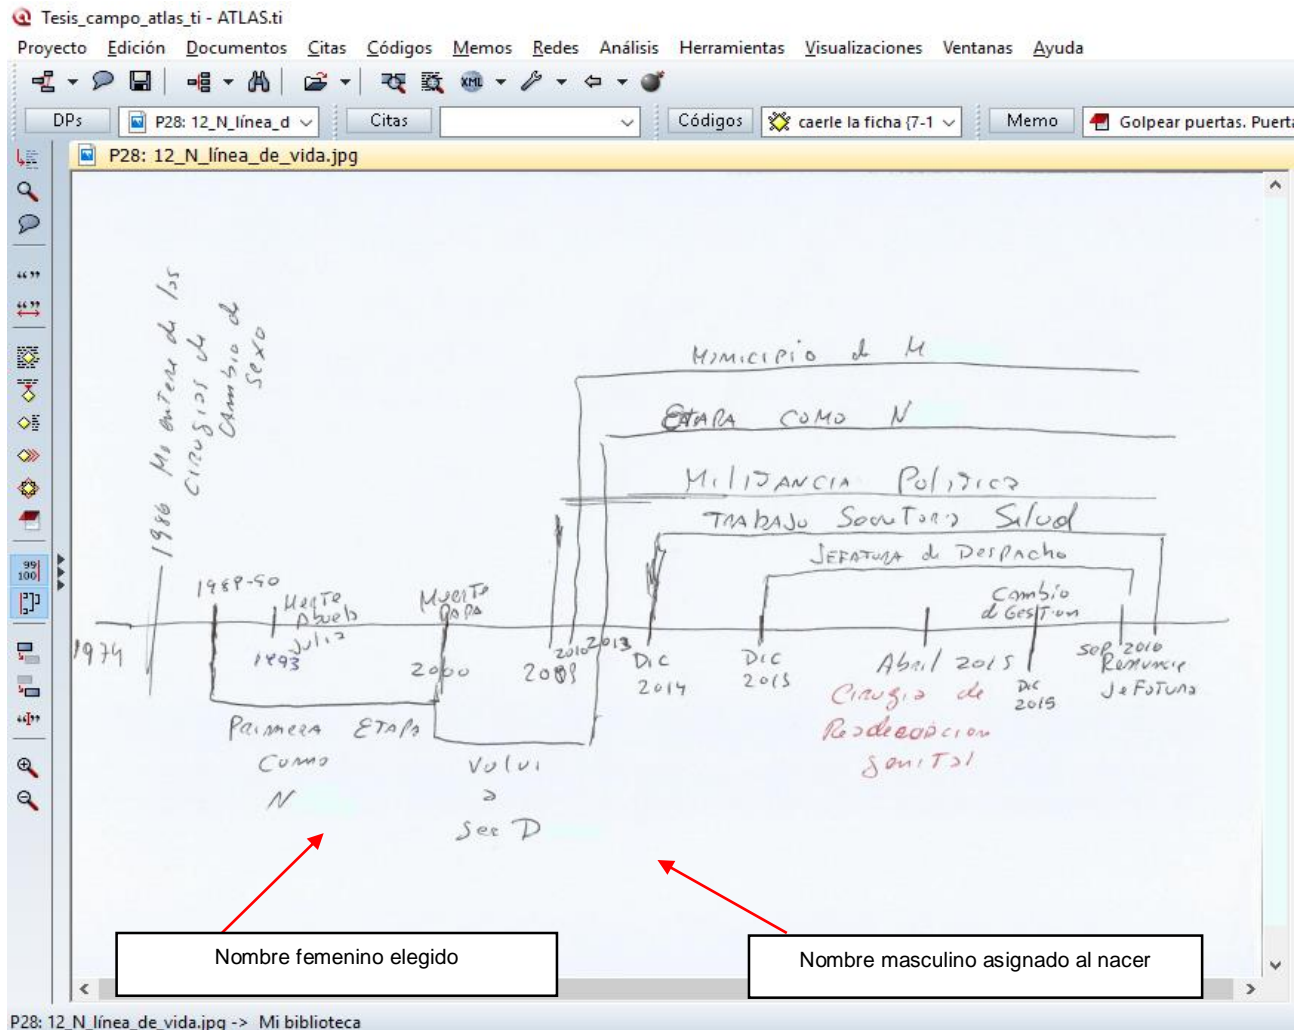 Tesis_campo_atlas_ti - ATLAS.ti
Proyecto Edición Documentos Citas Códigos Memos Redes Análisis Herramientas Visualizaciones Ventanas Ayuda
XML
DPs P28: 12_N_línea_d Citas Códigos caerle la ficha {7-1 Memo Golpear puertas. Puerta
P28: 12_N_línea_de_vida.jpg
1986 Me entere de las
cirugias de
cambio de
sexo
Municipio de M
ETAPA COMO N
Militancia Politica
TRABAJO Secretaria Salud
JEFATURA de Despacho
1989-90
Muerte
Abuela
Julia
1993
Muerte
PAPA
Cambio
de Gestion
1974
2000
2009
2010
2013
Dic
2014
Dic
2015
Abril 2015
Dic
2015
Sep 2016
Renuncia
Jefatura
Cirugia de
Readecuacion
genital
Primera ETAPA
Como
N
Volvi
a
Ser D
Nombre femenino elegido
Nombre masculino asignado al nacer
99
100
P28: 12_N_línea_de_vida.jpg -> Mi biblioteca